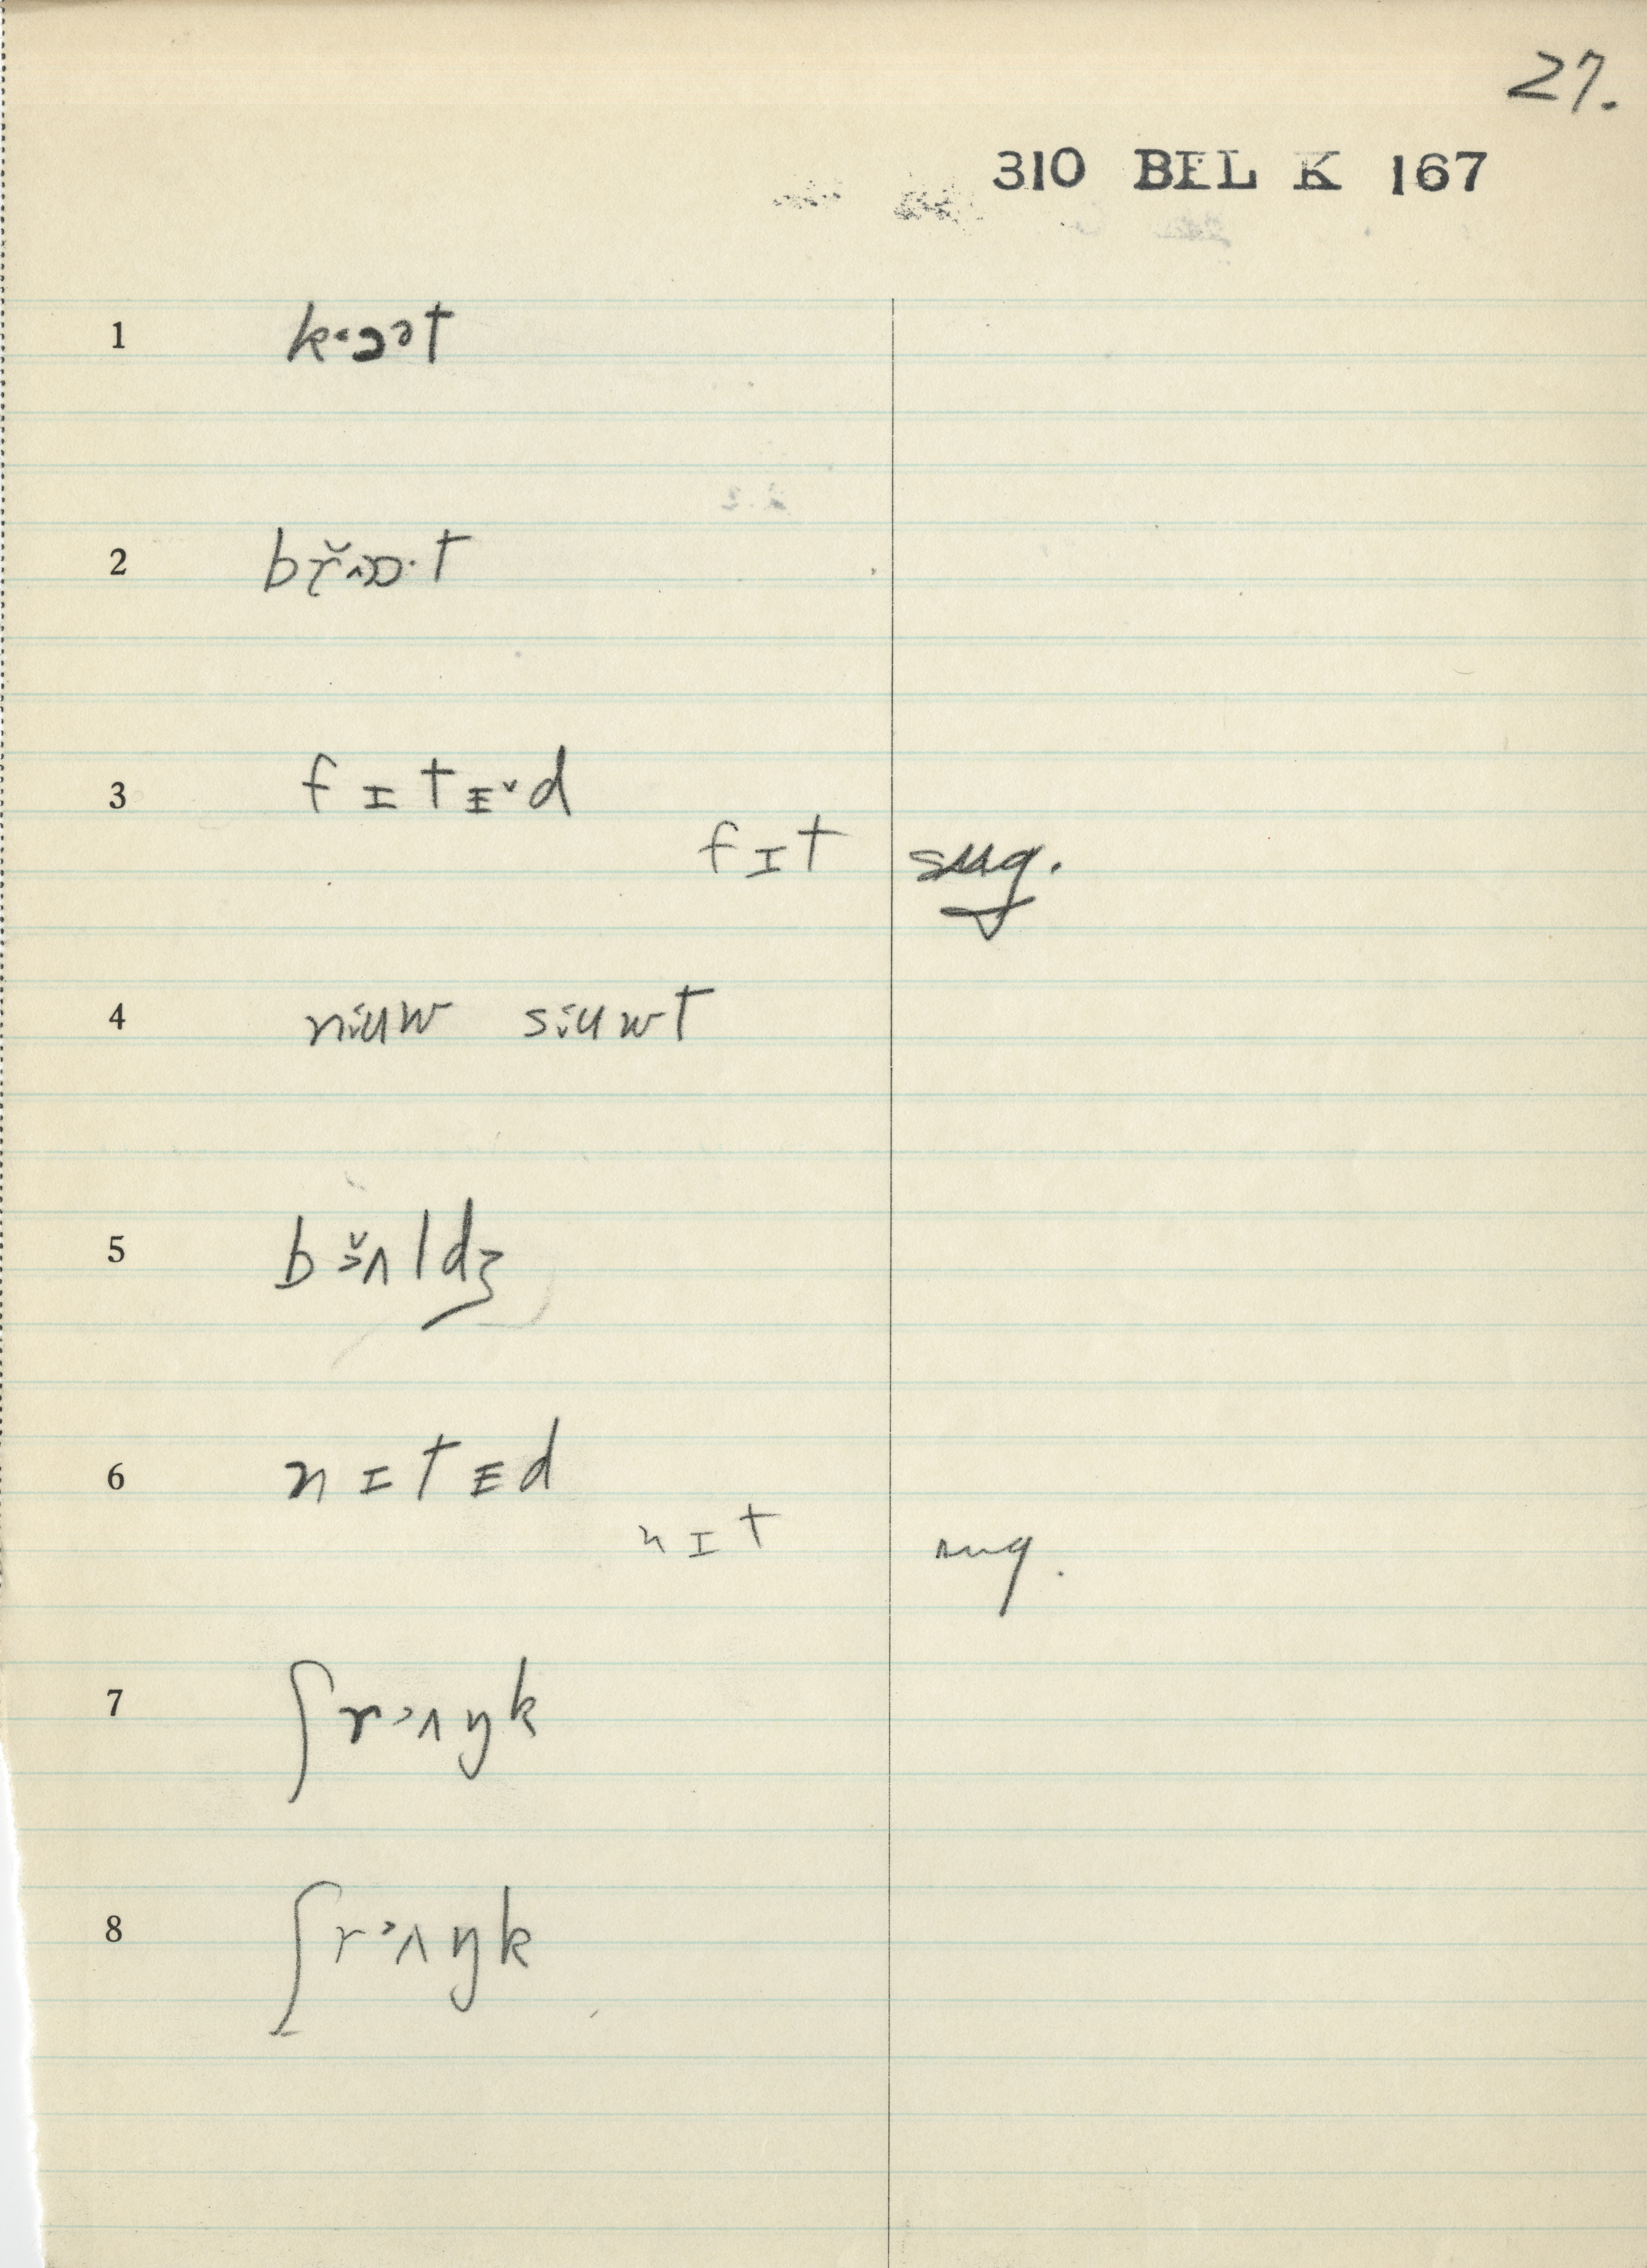 27.
310 BEL K 167
1 kˑɔɔt
2 bř
3 f ɪ t ɪ̵ ˇd
f ɪ t sug.
4 niuw siuwt
5 bɜ̆ʌldʒ
6 n ɪ t ɪ̵ d
n ɪ t sug.
7 ʃrɜʌŋk
8 ʃrɜʌŋk